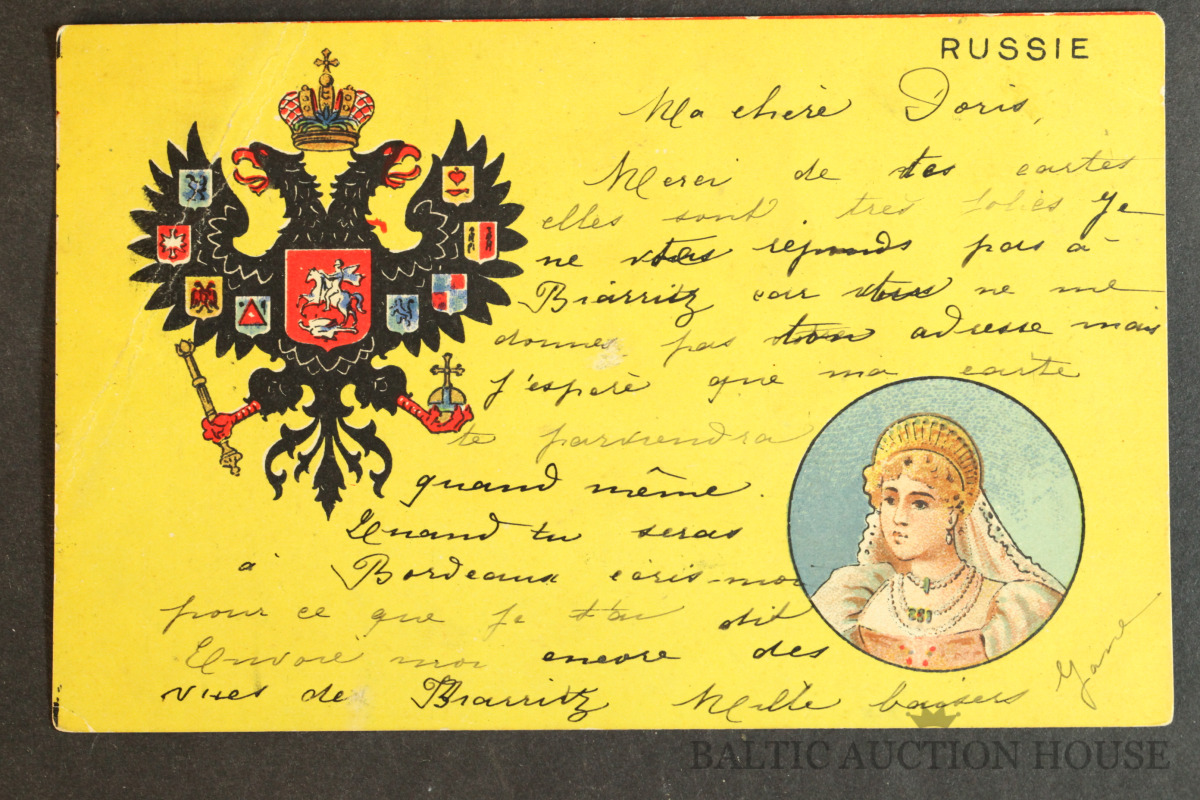 RUSSIE
Ma chère Doris,
Merci de tes cartes
elles sont très jolies Je
ne réponds pas à
Biarritz car ne me
donnes pas ton adresse mais
j'espère que ma carte
te parviendra
quand même.
Quand tu seras
à Bordeaux écris-moi
pour ce que je t'ai dit
Envoie moi encore des
vues de Biarritz Mille baisers
BALTIC AUCTION HOUSE